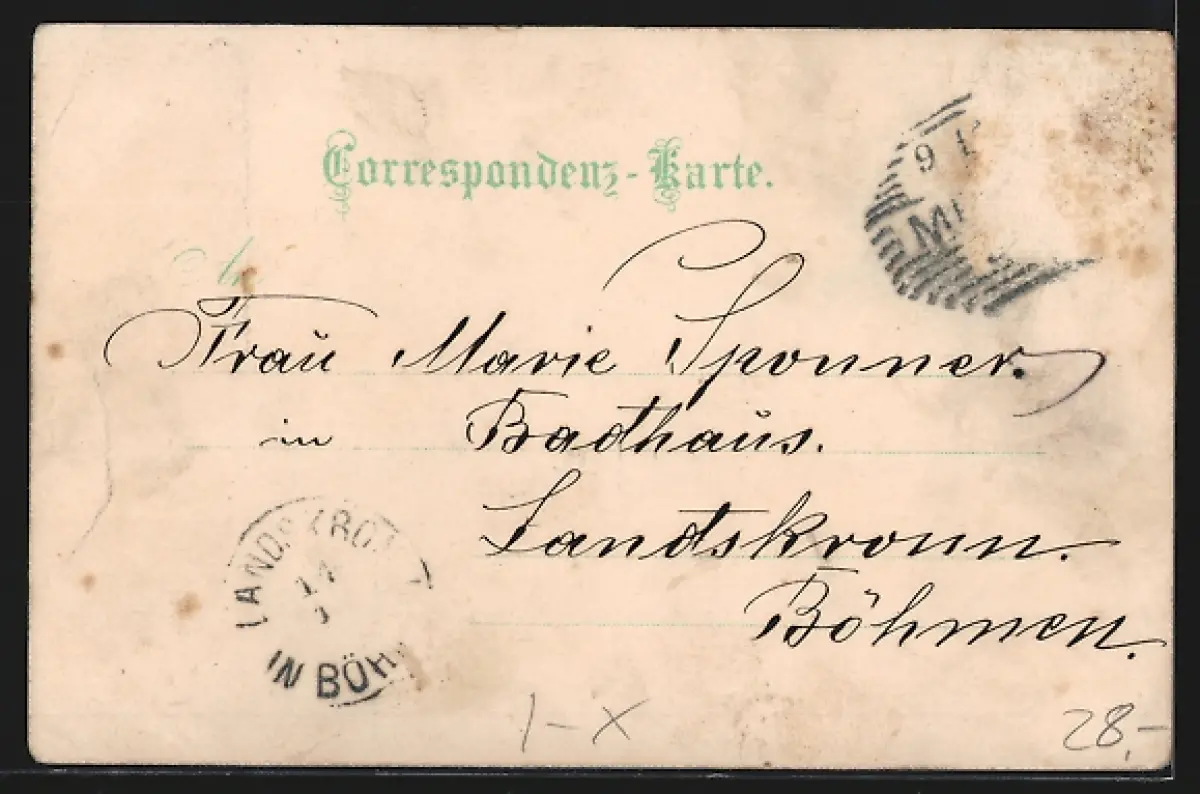 Correspondenz-Karte.
9
An
Fraŭ Marie Sponner.
in Badhaŭs.
Landskronn.
Böhmen.
14
IN BÖH
1-X
28,-